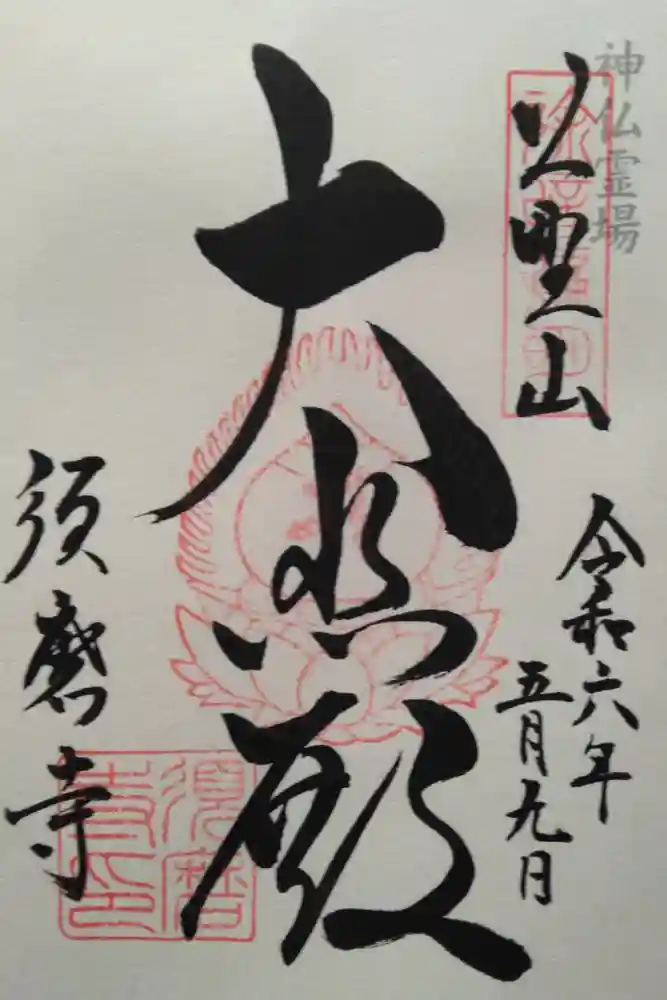 神仏霊場
上野山
令和六年
五月九日
大悲殿
須磨寺
須磨
寺印